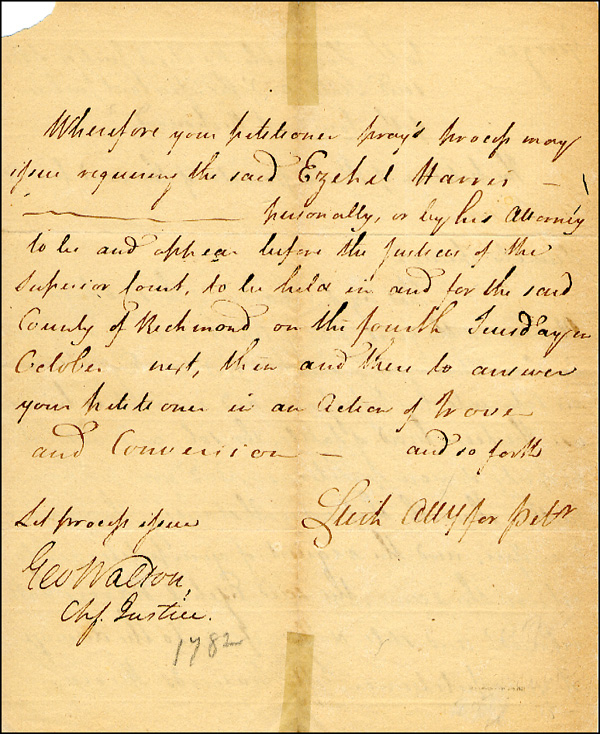 Wherefore your petitioner pray's process may
issue requiering the said Ezekel Harris —
personally, or by his Attorney
to be and appear before the Justices of the
Superior Court, to be held in and for the said
County of Richmond on the fourth Tuesday in
October next, then and there to answer
your petitioner in an Action of Trover
and Conversion — and so forth
Atty for Petr
Let process issue
Geo Walton,
Chf. Justice.
1782